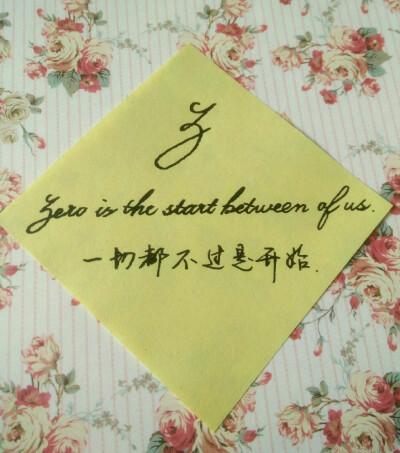 Z
Zero is the start between of us.
一切都不过是开始.